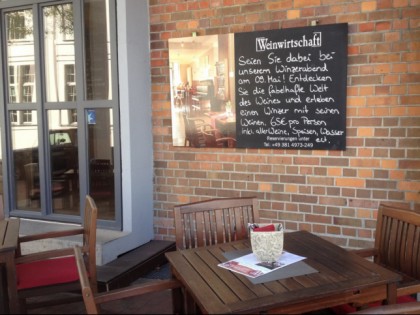 Weinwirtschaft
Seien Sie dabei bei
unserem Winzerabend
am 09. Mai! Entdecken
Sie die fabelhafte Welt
des Weines und erleben
einen Winzer mit seinen
Weinen. 65€ pro Person
inkl. aller Weine, Speisen, Wasser
ect.
Reservierungen unter
Tel. +49 381 4973-249